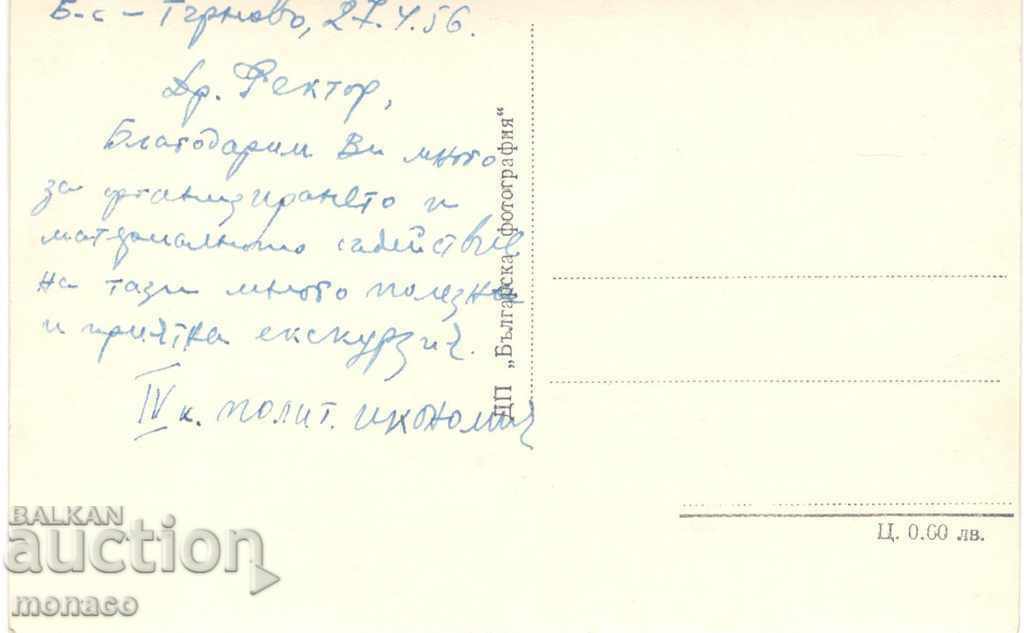 Б-с – Търново, 27.4.56.
Др. Ректор,
Благодарим Ви много
за организирането и
материалното съдействие
на тази много полезна
и приятна екскурзия.
IV к. полит. икономия
ДП „Българска фотография“
Ц. 0.60 лв.
BALKAN
auction
monaco